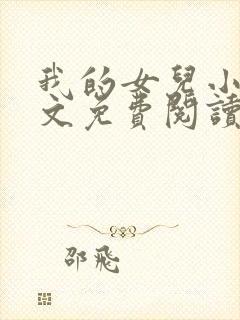 我的女兒小
文免費閱讀
邵飛